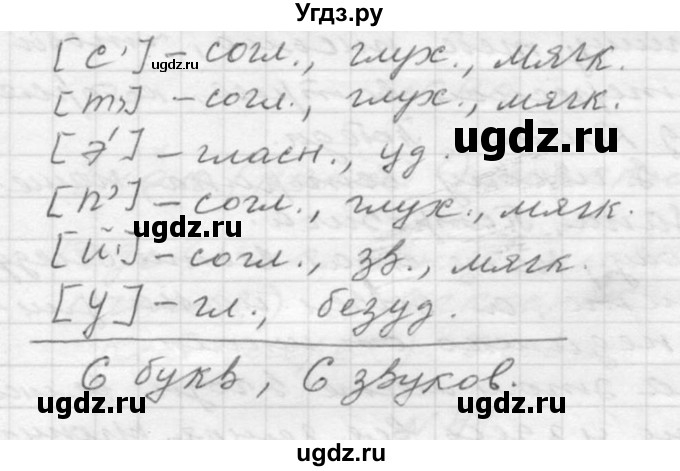 Угдз.ру
[с'] – согл., глух., мягк.
ugdz.ru
[т'] – согл., глух., мягк.
ugdz.ru
[э'] – гласн., уд.
[п'] – согл., глух., мягк.
ugdz.ru
[й'] – согл., зв., мягк.
[у] – гл., безуд.
6 букв, 6 звуков.
ugdz.ru
ugdz.ru
ugdz.ru